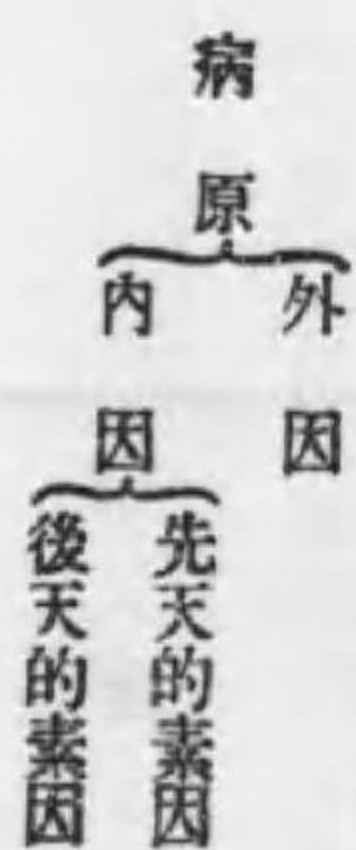 病原
外因
內因
先天的素因
後天的素因